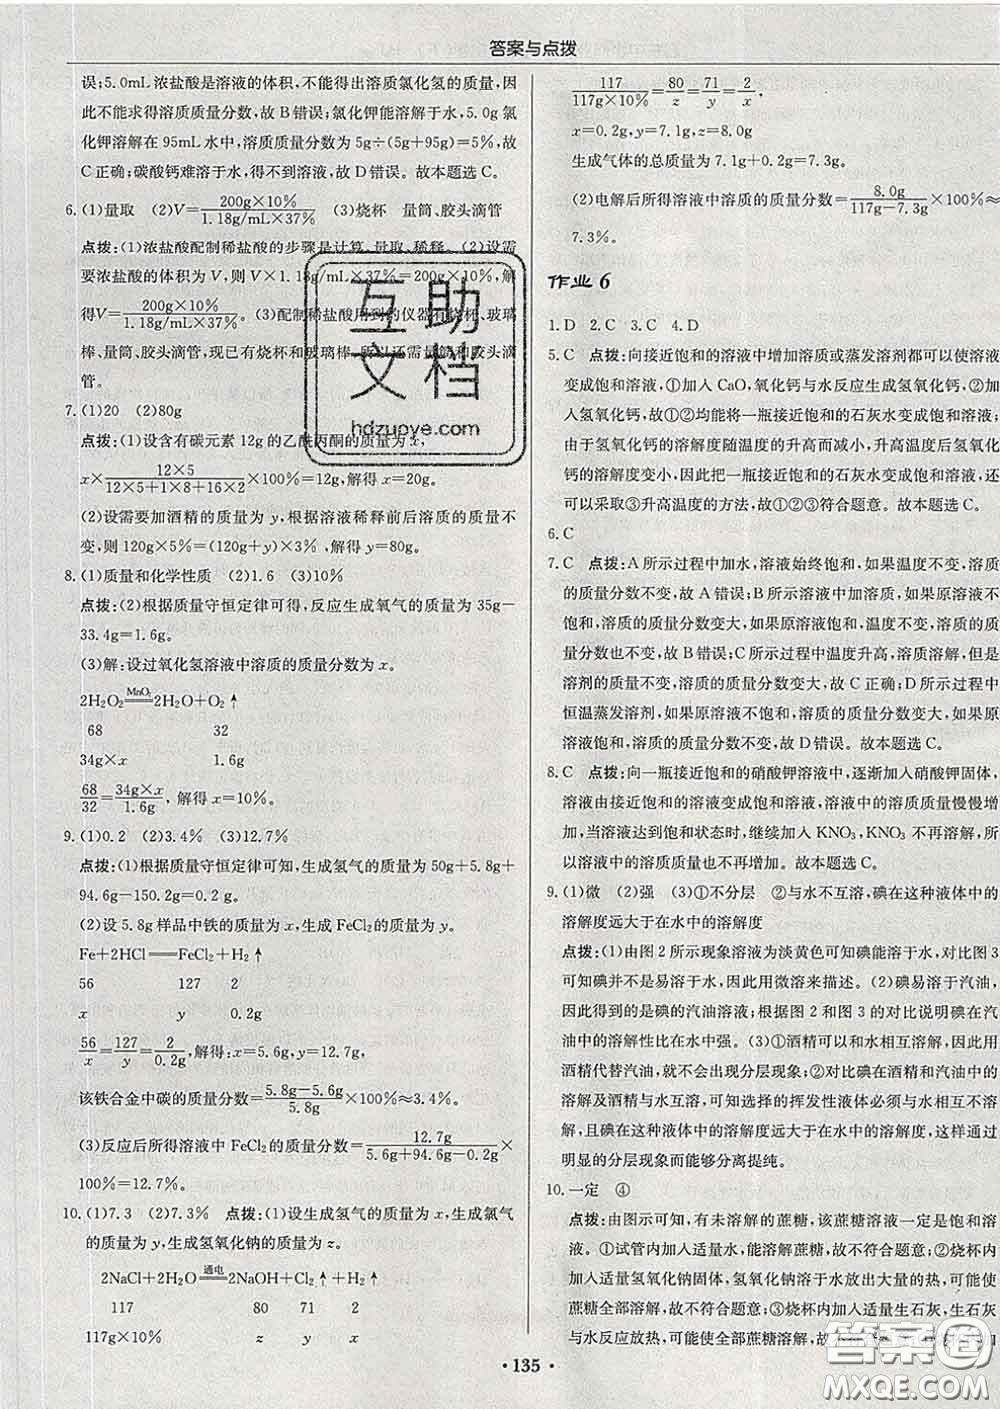 答案与点拨
误;5.0mL浓盐酸是溶液的体积,不能得出溶质氯化氢的质量,因
此不能求得溶质质量分数,故B错误;氯化钾能溶解于水,5.0g氯
化钾溶解在95mL水中,溶质质量分数为5g÷(5g+95g)=5%,故
C正确;碳酸钙难溶于水,得不到溶液,故D错误。故本题选C。
6. (1)量取 (2)V=200g×10%/1.18g/mL×37% (3)烧杯 量筒、胶头滴管
点拨:(1)浓盐酸配制稀盐酸的步骤是计算、量取、稀释。(2)设需
要浓盐酸的体积为V,则V×1.18g/mL×37%=200g×10%,解
得V=200g×10%/1.18g/mL×37%。(3)配制稀盐酸用到的仪器有烧杯、玻璃
棒、量筒、胶头滴管,现已有烧杯和玻璃棒,所以还需量筒和胶头滴
管。
7. (1)20 (2)80g
点拨:(1)设含有碳元素12g的乙酰丙酮的质量为x,
x×12×5/12×5+1×8+16×2×100%=12g,解得x=20g。
(2)设需要加酒精的质量为y,根据溶液稀释前后溶质的质量不
变,则120g×5%=(120g+y)×3%,解得y=80g。
8. (1)质量和化学性质 (2)1.6 (3)10%
点拨:(2)根据质量守恒定律可得,反应生成氧气的质量为35g−
33.4g=1.6g。
(3)解:设过氧化氢溶液中溶质的质量分数为x。
2H₂O₂ MnO₂ 2H₂O+O₂↑
68 32
34g×x 1.6g
68/32=34g×x/1.6g,解得x=10%。
9. (1)0.2 (2)3.4% (3)12.7%
点拨:(1)根据质量守恒定律可知,生成氢气的质量为50g+5.8g+
94.6g−150.2g=0.2 g。
(2)设5.8g样品中铁的质量为x,生成FeCl₂的质量为y。
Fe+2HCl══FeCl₂+H₂↑
56 127 2
x y 0.2g
56/x=127/y=2/0.2g,解得:x=5.6g,y=12.7g,
该铁合金中碳的质量分数=5.8g−5.6g/5.8g×100%≈3.4%。
(3)反应后所得溶液中FeCl₂的质量分数=12.7g/5.6g+94.6g−0.2g×
100%=12.7%。
10. (1)7.3 (2)7.3% 点拨:(1)设生成氢气的质量为x,生成氯气
的质量为y,生成氢氧化钠的质量为z。
2NaCl+2H₂O 通电 2NaOH+Cl₂↑+H₂↑
117 80 71 2
117g×10% z y x
117/117g×10%=80/z=71/y=2/x,
x=0.2g,y=7.1g,z=8.0g
生成气体的总质量为7.1g+0.2g=7.3g。
(2)电解后所得溶液中溶质的质量分数=8.0g/117g−7.3g×100%≈
7.3%。
作业6
1. D 2. C 3. C 4. D
5. C 点拨:向接近饱和的溶液中增加溶质或蒸发溶剂都可以使溶液
变成饱和溶液,①加入CaO,氧化钙与水反应生成氢氧化钙,②加
入氢氧化钙,故①②均能将一瓶接近饱和的石灰水变成饱和溶液;
由于氢氧化钙的溶解度随温度的升高而减小,升高温度后氢氧化
钙的溶解度变小,因此把一瓶接近饱和的石灰水变成饱和溶液,还
可以采取③升高温度的方法,故①②③符合题意。故本题选C。
6. C
7. C 点拨:A所示过程中加水,溶液始终饱和,如果温度不变,溶质
的质量分数不变,故A错误;B所示溶液中加溶质,如果原溶液不
饱和,溶质的质量分数变大,如果原溶液饱和,温度不变,溶质的质
量分数不变,故B错误;C所示过程中温度升高,溶质溶解,但是
溶剂的质量不变,溶质的质量分数变大,故C正确;D所示过程中
恒温蒸发溶剂,如果原溶液不饱和,溶质的质量分数变大,如果原
溶液饱和,溶质的质量分数不变,故D错误。故本题选C。
8. C 点拨:向一瓶接近饱和的硝酸钾溶液中,逐渐加入硝酸钾固体,
溶液由接近饱和的溶液变成饱和溶液,溶液中的溶质质量慢慢增
加,当溶液达到饱和状态时,继续加入KNO₃,KNO₃不再溶解,所
以溶液中的溶质质量也不再增加。故本题选C。
9. (1)微 (2)强 (3)①不分层 ②与水不互溶,碘在这种液体中的
溶解度远大于在水中的溶解度
点拨:(1)由图2所示现象溶液为淡黄色可知碘能溶于水,对比图3
可知碘并不是易溶于水,因此用微溶来描述。(2)碘易溶于汽油,
因此得到的是碘的汽油溶液;根据图2和图3的对比说明碘在汽
油中的溶解性比在水中强。(3)①酒精可以和水相互溶解,因此用
酒精代替汽油,就不会出现分层现象;②碘在酒精和汽油中的溶解
及酒精与水互溶,可知选择的挥发性液体必须与水相互不溶
解,且碘在这种液体中的溶解度远大于在水中的溶解度,这样通过
明显的分层现象而能够分离提纯。
10. 一定 ④
点拨:由图示可知,有未溶解的蔗糖,该蔗糖溶液一定是饱和溶
液。①试管内加入适量水,能溶解蔗糖,故不符合题意;②烧杯内
加入适量氢氧化钠固体,氢氧化钠溶于水放出大量的热,可能使
蔗糖全部溶解,故不符合题意;③烧杯内加入适量生石灰,生石灰
与水反应放热,可能使全部蔗糖溶解,故不
• 135 •
互助文档
hdzupye.com
答案圈
MXQE.COM